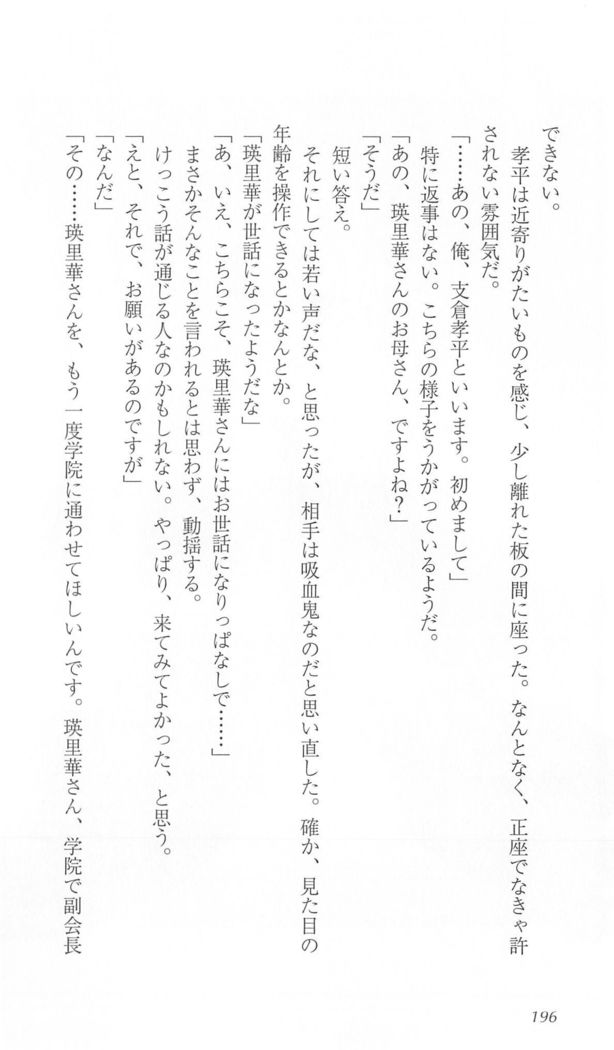 できない。
　孝平は近寄りがたいものを感じ、少し離れた板の間に座った。なんとなく、正座でなきゃ許
されない雰囲気だ。
「……あの、俺、支倉孝平といいます。初めまして」
　特に返事はない。こちらの様子をうかがっているようだ。
「あの、瑛里華さんのお母さん、ですよね？」
「そうだ」
　短い答え。
　それにしては若い声だな、と思ったが、相手は吸血鬼なのだと思い直した。確か、見た目の
年齢を操作できるとかなんとか。
「瑛里華が世話になったようだな」
「あ、いえ、こちらこそ、瑛里華さんにはお世話になりっぱなしで……」
　まさかそんなことを言われるとは思わず、動揺する。
　けっこう話が通じる人なのかもしれない。やっぱり、来てみてよかった、と思う。
「えと、それで、お願いがあるのですが」
「なんだ」
「その……瑛里華さんを、もう一度学院に通わせてほしいんです。瑛里華さん、学院で副会長
196